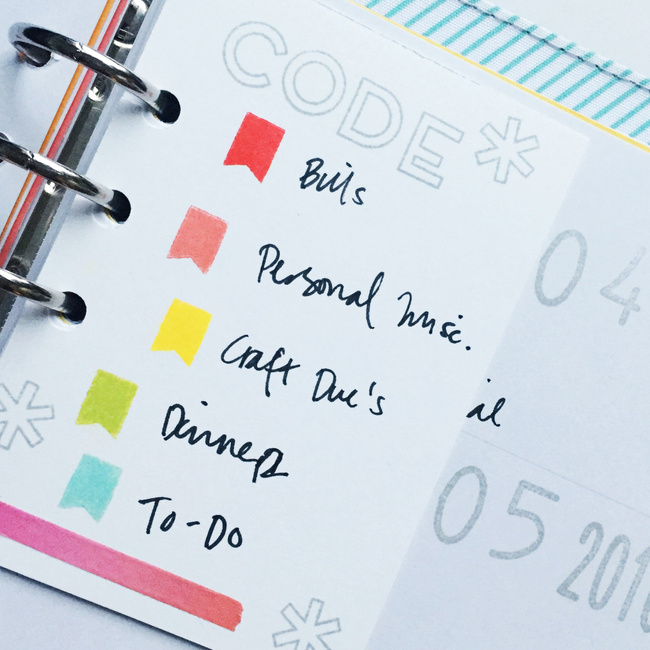 CODE*
Bills
Personal misc.
Craft Due's
Dinner
To-Do
04
al
05 201